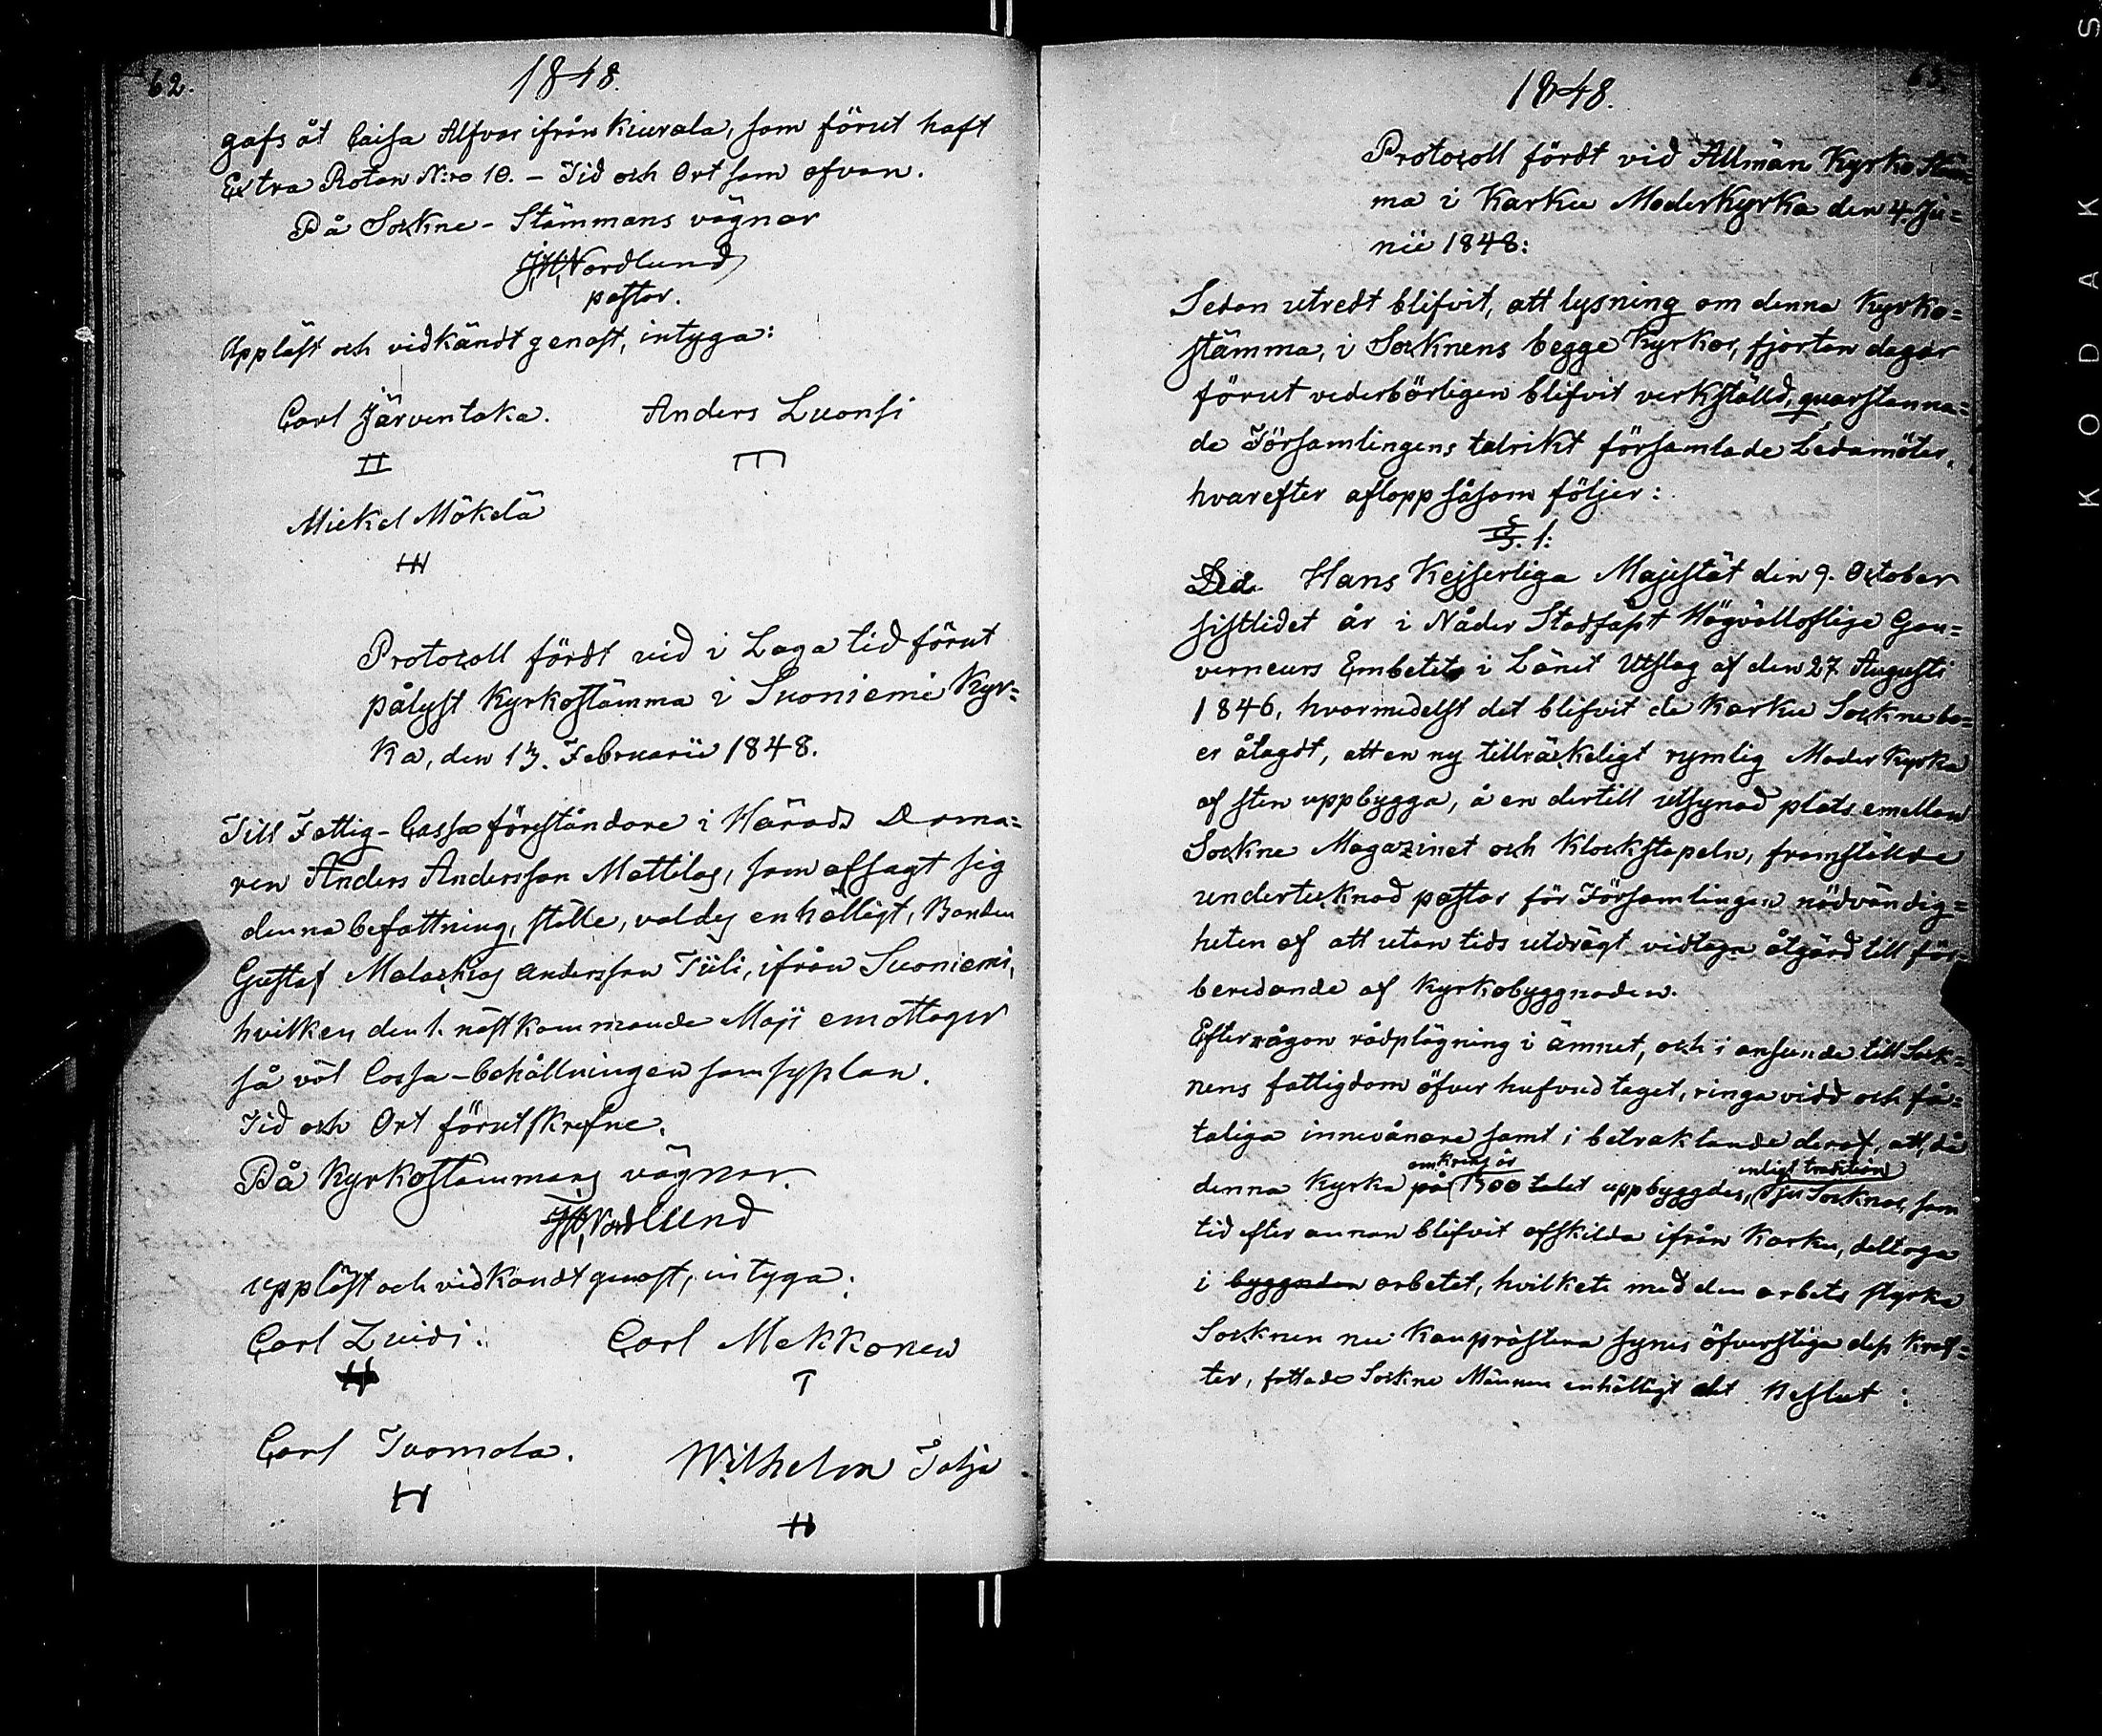 62.
1848.
gafs åt Caisa Alfvar ifrån Kiurala, som förut haft
Extra Rotan N:ro 10. - Tid och Ort som ofvan.
På Sockne-Stämmans vägnar
JH Nordlund
pastor.
Uppläst och vidkändt genast, intyga:
Carl Järventaka. Anders Luonsi
Mickel Mäkelä
Protocoll fördt vid i Laga tid förut
pålyst Kyrkostämma i Suoniemi Kyr=
ka, den 13. Februarii 1848.
Till Fattig-Cassa föreståndare i Härads Doma=
ren Anders Andersson Mattilas, som afsagt sig
denna befattning, ställe, valdes enhälligt, Bonden
Gustaf Malachias Andersson Tiili, ifrån Suoniemi,
hvilken den 1. nästkommande Maji emottager
så väl Cassa-behållningen som sysslan.
Tid och Ort förutskrefne.
På Kyrkostämmans vägnar.
JH Nordlund
uppläst och vidkändt genast, intyga:
Carl Zuidi. Carl Mekkonen
Carl Tuomola. Wilhelm Talja
63.
1848.
Protocoll fördt vid Allmän Kyrko Stäm=
ma i Karku Moderkyrka den 4 Ju=
nii 1848:
Sedan utredt blifvit, att lysning om denna Kyrko=
stämma, i Socknens begge Kyrkor, fjorton dagar
förut vederbörligen blifvit verkställd, quarstanna=
de Församlingens talrikt församlade Ledamöter,
hvarefter aflopp såsom följer:
§. 1:
Hans Kejserliga Majestät den 9. October
sistlidet år i Nåder Stadfäst Högvälloflige Gou=
verneurs Embetets i Länet Utslag af den 27 Augusti
1846, hvarmedelst det blifvit de Karku Socknebo=
er ålagdt, att en ny tillräckeligt rymlig Moder Kyrka
af sten uppbygga, å en dertill utsynad plats emellan
Sockne Magazinet och Klockstapeln, framställde
undertecknad pastor för Församlingen nödvändig=
heten af att utan tids utdrägt vidtaga åtgärd till för=
beredande af Kyrkobyggnaden.
Efter någon rådplägning i ämnet, och i anseende till Sock=
nens fattigdom öfver hufvud taget, ringa vidd och få=
taliga innevånare samt i betraktande deraf, att, då
omkring år enligt tradition
denna Kyrka på 1500 talet uppbyggdes, sju Socknar, som
tid efter annan blifvit afskilda ifrån Karku, deltoga
i byggnaden arbetet, hvilket med den arbets styrka
Socknen nu kan prästera synes öfverstiga dess kraf=
ter, fattade Sockne Männen enhälligt det Beslut:
KODAK S